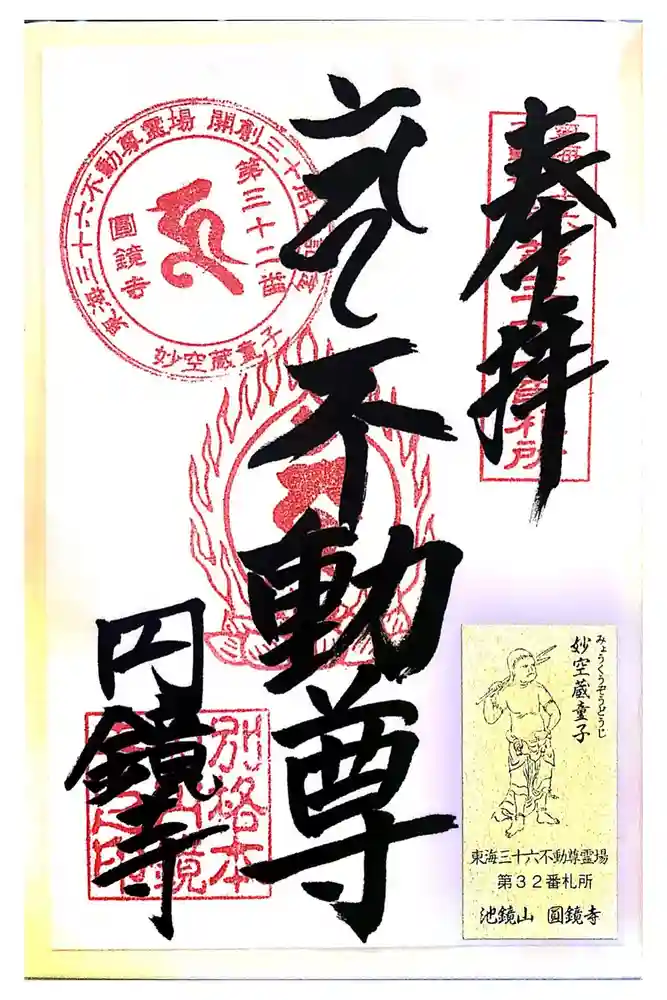 奉拝
不動尊
円鏡寺
東海三十六不動尊霊場 開創三十周年記念
第三十二番
圓鏡寺
妙空蔵童子
別格本
みょうくうぞうどうじ
妙空蔵童子
東海三十六不動尊霊場
第32番札所
池鏡山 圓鏡寺